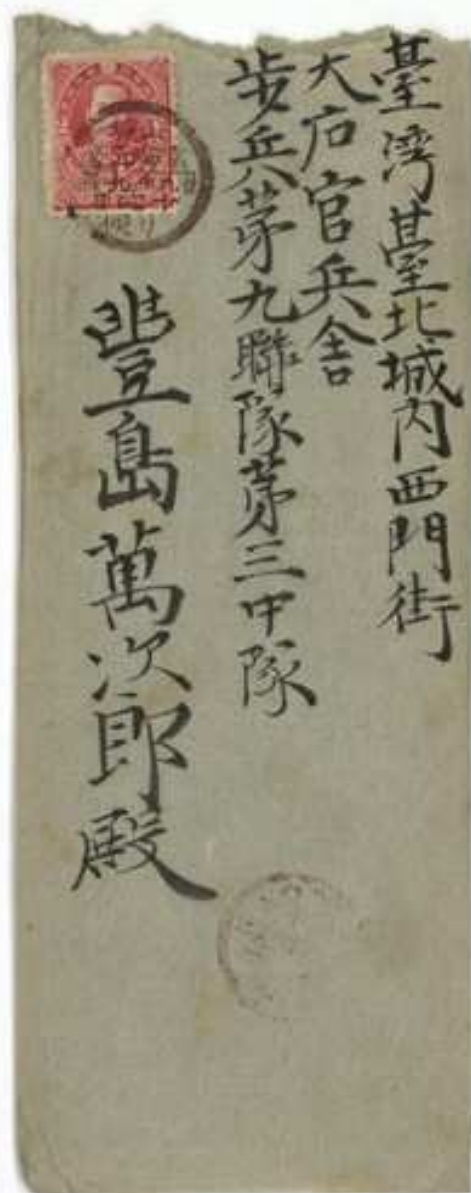 臺灣臺北城内西門街
大后官兵舎
歩兵第九聯隊第三中隊
豐島萬次郎殿